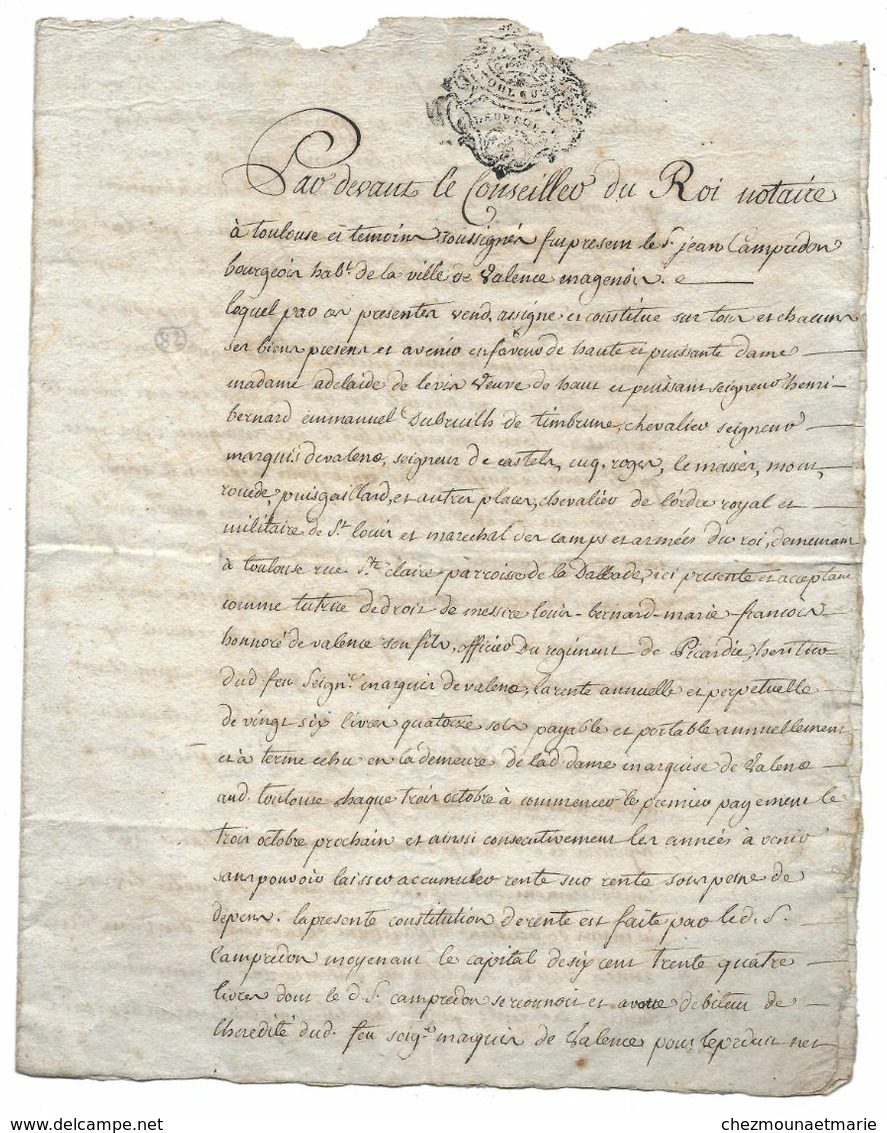 TOULOUSE
Par devant le Conseiller du Roi notaire
à toulouse et temoins soussignés fut present le S.r jean Campredon
bourgeois hab.t de la ville de Valence en agenois.
lequel par ces presentes vend, assigne et constitue sur tous et chacuns
ses biens presens et avenir en faveur de haute et puissante dame
madame adelaide de levis veuve de haut et puissant seigneur henri-
bernard emmanuel Dubruilh de timbrune, chevalier seigneur
marquis de valence, seigneur de castels, cuq, roger, le massés, mont,
rouede, puisgaillard, et autres places, chevalier de l'ordre royal et
militaire de S.t louis et marechal des camps et armées du roi, demeurant
à toulouse rue S.te claire parroisse de la Dalbade, ici presente et acceptant
comme tutrice de droit de messire louis-bernard-marie-françois
honnoré de valence son fils, officier du regiment de Picardie, heritier
dud. feu Seign.r marquis de valence, la rente annuelle et perpetuelle
de vingt six livres quatorze sols payable et portable annuellement
et à terme echu en la demeure de lad. dame marquise de Valence
aud. toulouse chaque trois octobre à commencer le premier payement le
trois octobre prochain et ainssi consecutivement les années à venir
sans pouvoir laisser accumuler rente sur rente sous peine de
depens. la presente constitution de rente est faite par led. S.r
Campredon moyenant le capital de six cent trente quatre
livres dont le d. S.r campredon se reconnoit et avoue debiteur de
l'heredité dud. feu seig.r marquis de Valence pour le produit net
23
chezmounaetmarie